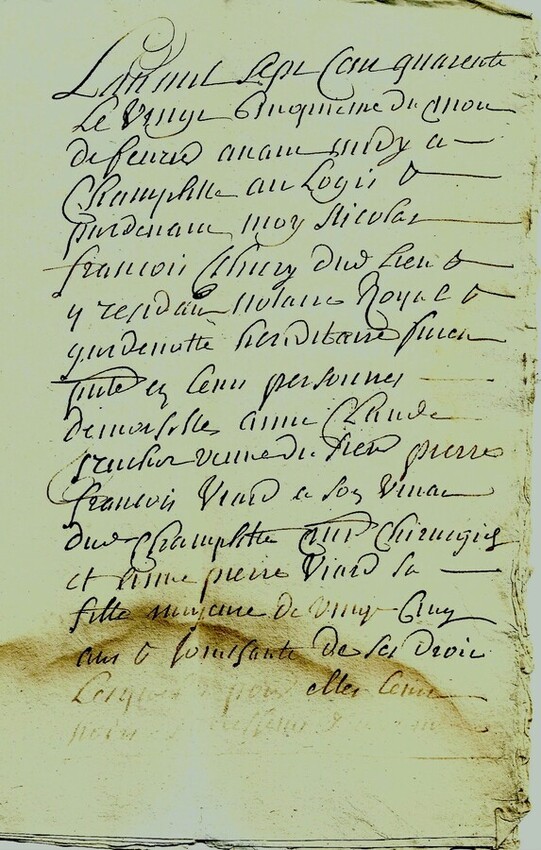 Lan mil sept Cent quarente
Le Vingt Cinquieme du mois
de fevrier avant midy a
Champlitte au Logis &
pardevant moy Nicolas
francois Thiery dud Lieu &
y residant notaire Royal &
gardenotte hereditaire furent
en leurs personnes
demoiselles anne Claude
veuve du sieur pierre
francois Viard a son vivant
dud Champlitte Chirurgien
et anne pierre Viard sa
fille majeure de vingt Cinq
ans & Jouissante de ses droits
Lesquelles pour elles leurs